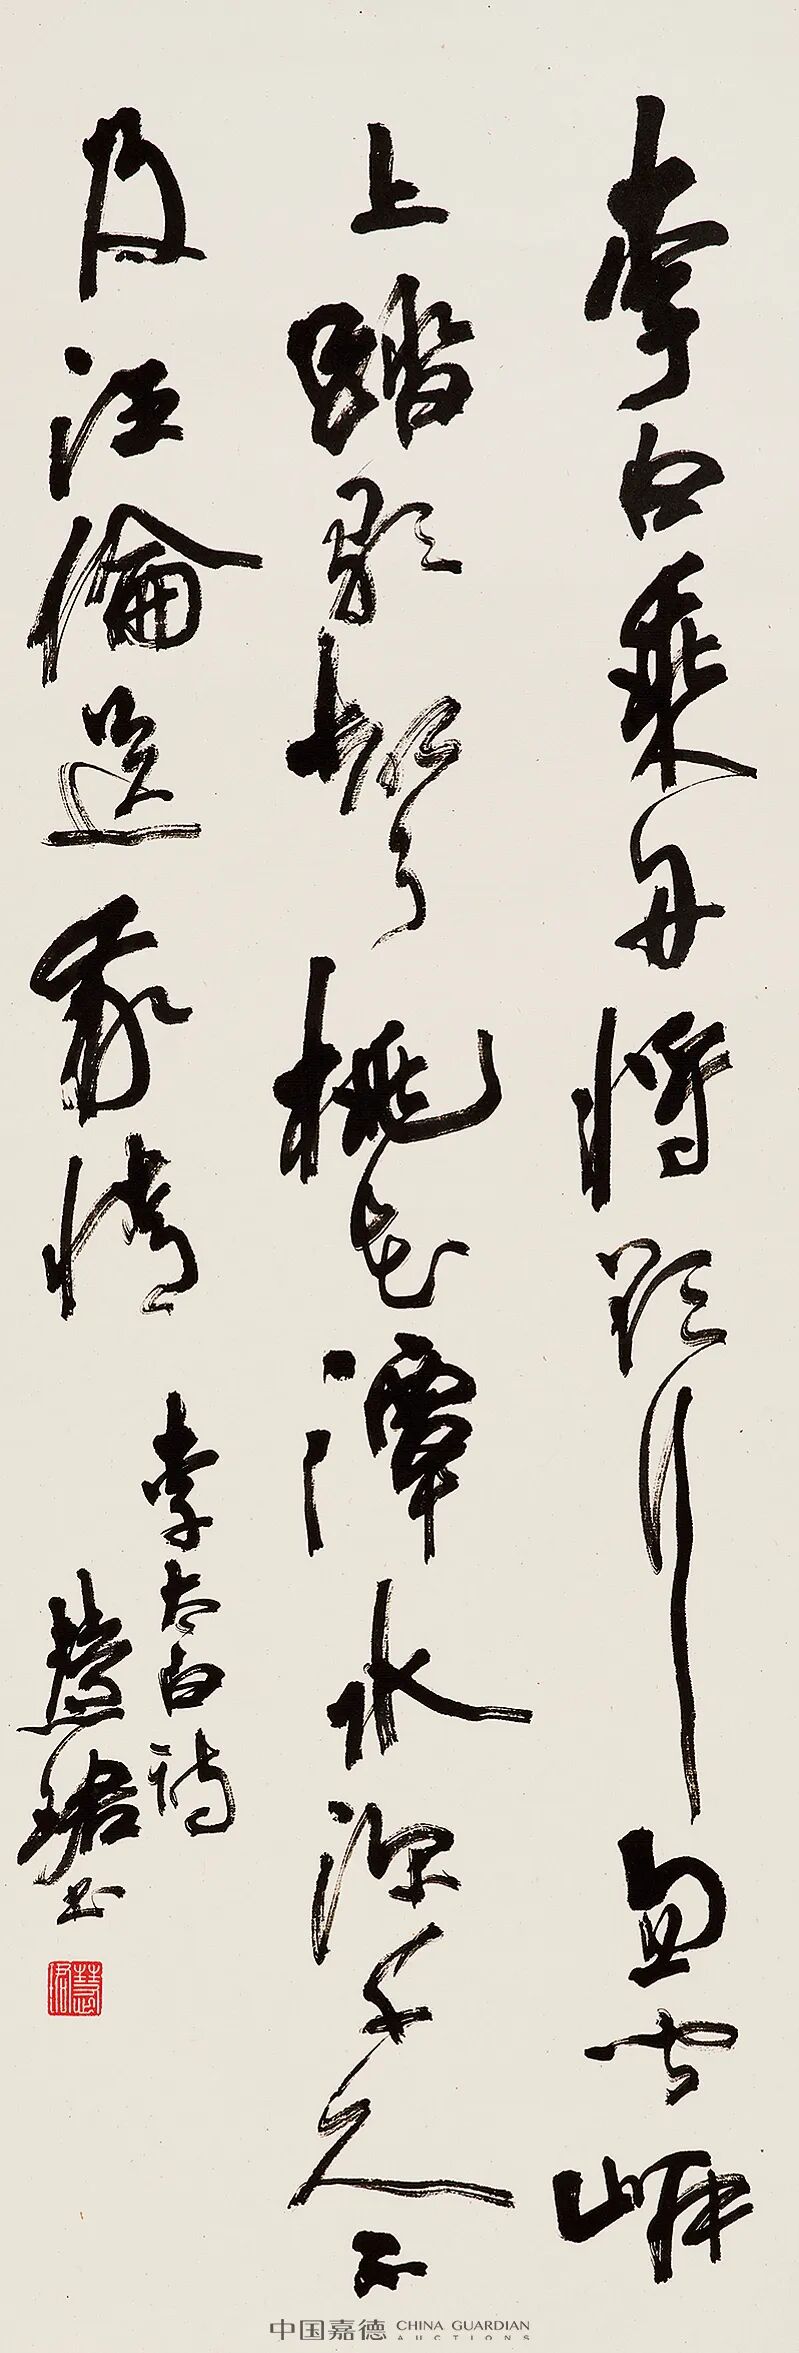 李白乘舟將欲行忽聞岸
上踏歌聲桃花潭水深千尺不
及汪倫送我情
李太白詩
慧珺書
慧珺
中国嘉德 CHINA GUARDIAN
AUCTIONS